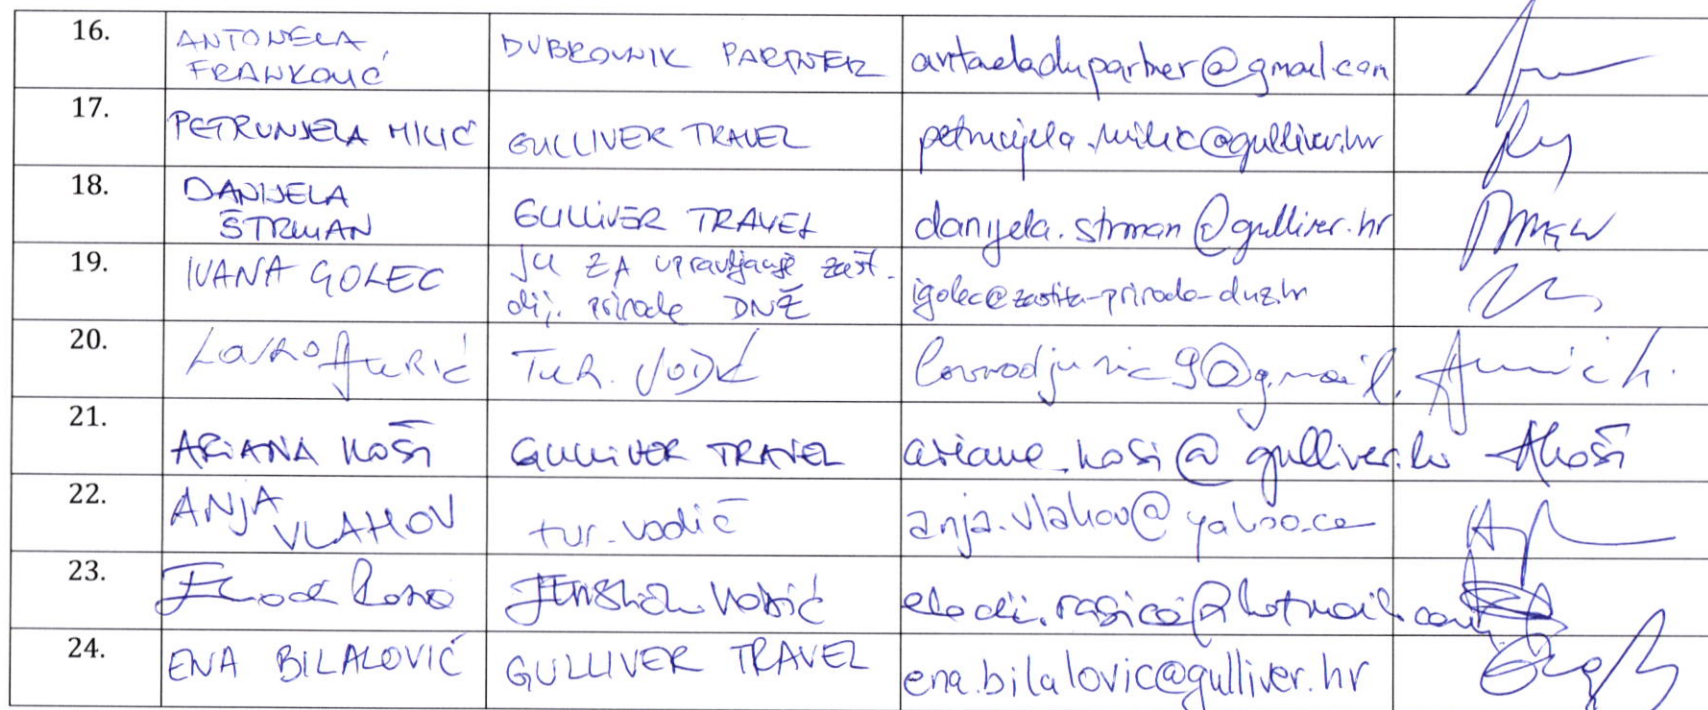 16. ANTONELA FRANKOVIĆ DUBROVNIK PARTNER antoneladupartner@gmail.com
17. PETRUNJELA MILIĆ GULLIVER TRAVEL petrunjela.milic@gulliver.hr
18. DANIJELA ŠTRMAN GULLIVER TRAVEL danijela.strman@gulliver.hr
19. IVANA GOLEC JU ZA upravljanje zašt. dij. prirode DNŽ igolec@zastita-prirode-dnz.hr
20. Tur. VODIČ
21. ARIANA KOŠI GULLIVER TRAVEL ariana.kosi@gulliver.hr AKoši
22. ANJA VLAHOV tur. vodič anja.vlahov@yahoo.co
23. vodič
24. ENA BILALOVIĆ GULLIVER TRAVEL ena.bilalovic@gulliver.hr